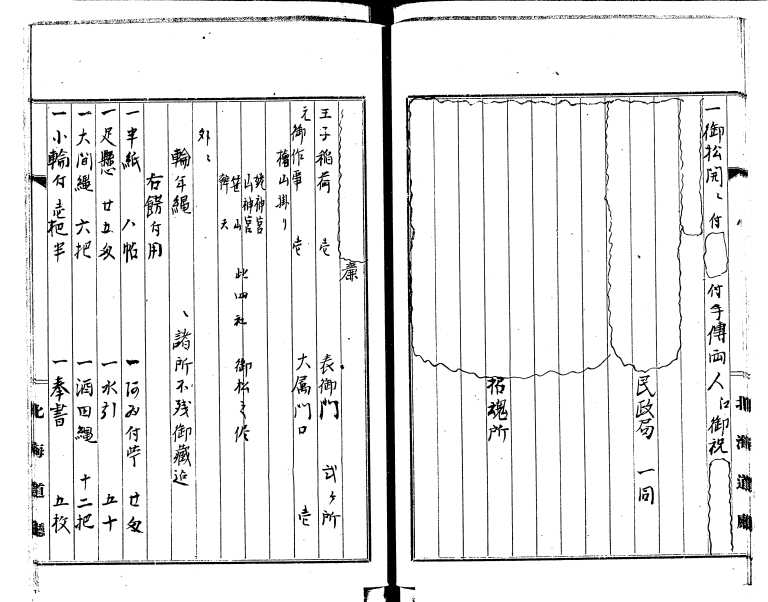 一御松開ヽ付 付手傳両人江御祝
民政局 一同
招魂所
北海道廳
廉
王子稲荷 壱 表御門 弐ヶ所
元御作事 壱 大属門口 壱
檜山掛り
山神宮
笹山
辨天
此四社 御松
外ニ
輪年縄 ヽ諸所不残御蔵迠
右餝付用
一半紙 八帖 廿匁
一足懸 廿五匁 一水引 五十
一大間縄 六把 一酒田縄 十二把
一小輪付 壱把半 一奉書 五枚
北海道廳